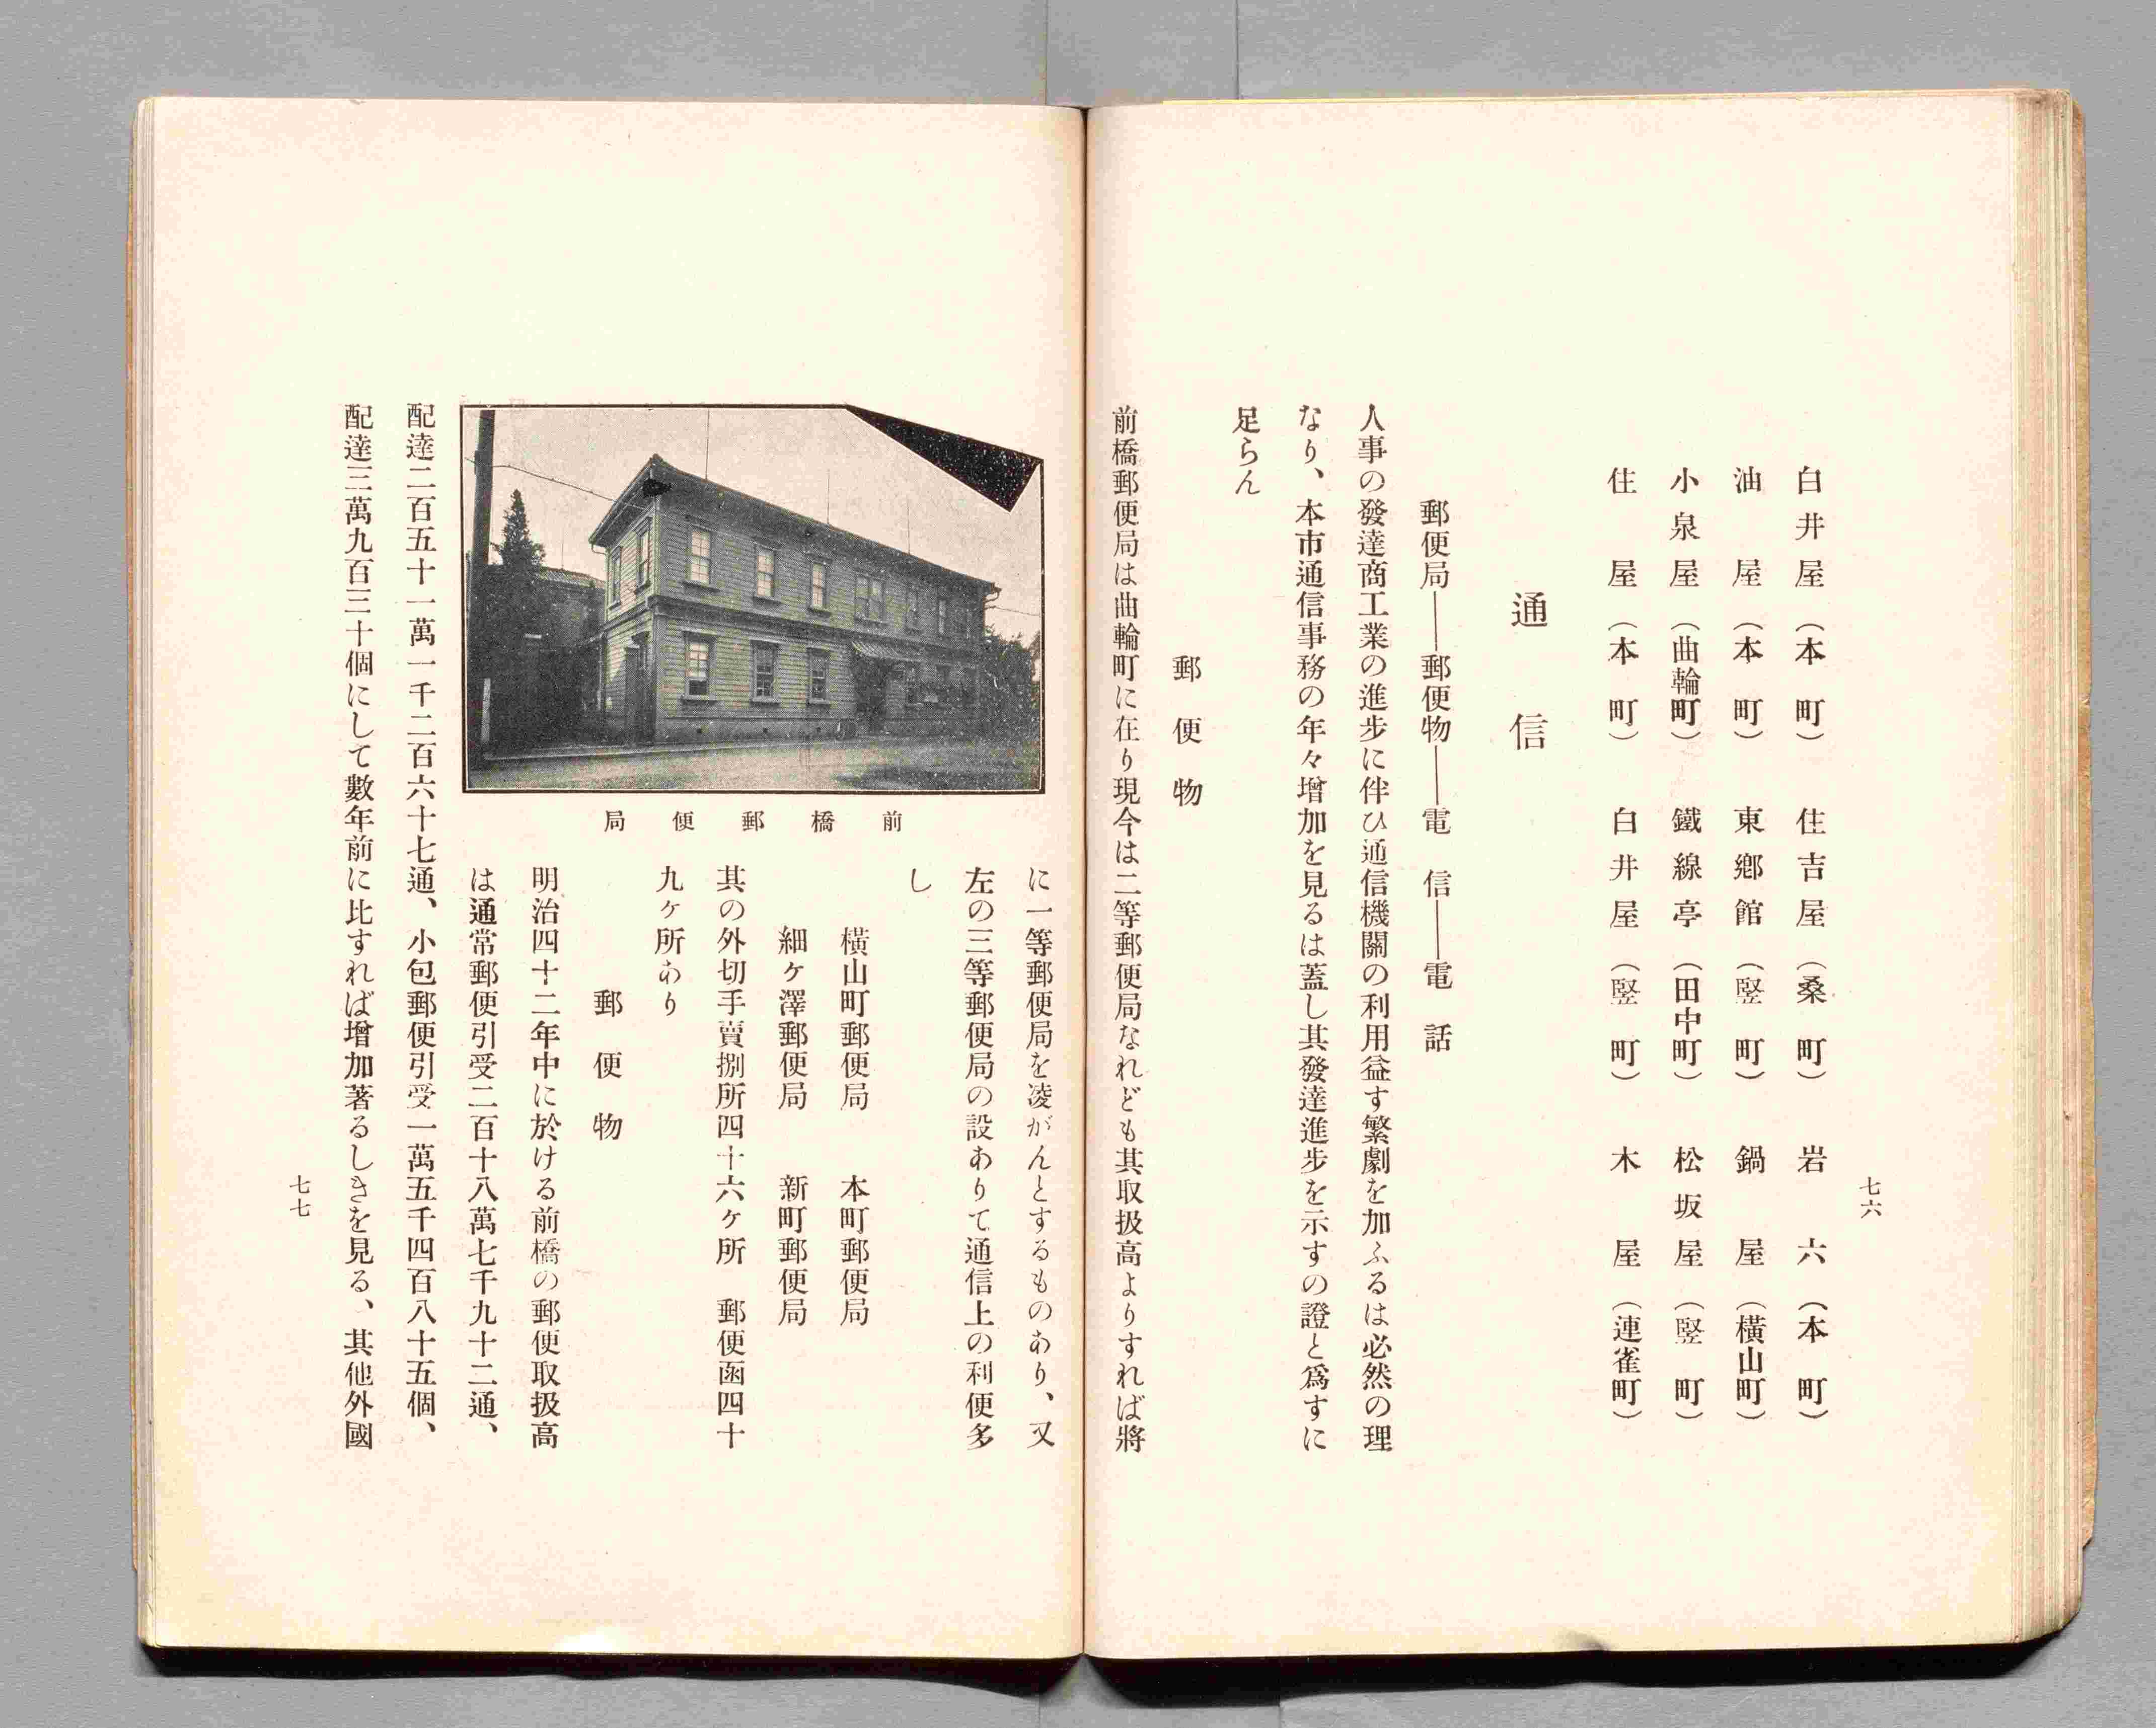 白井屋（本町）　住吉屋（桑町）　岩六（本町）
油屋（本町）　東鄕館（竪町）　鍋屋（橫山町）
小泉屋（曲輪町）　鐵線亭（田中町）　松坂屋（竪町）
住屋（本町）　白井屋（竪町）　木屋（連雀町）
通信
郵便局――郵便物――電信――電話
人事の發達商工業の進步に伴ひ通信機關の利用益す繁劇を加ふるは必然の理
なり、本市通信事務の年々增加を見るは蓋し其發達進步を示すの證と爲すに
足らん
郵便物
前橋郵便局は曲輪町に在り現今は二等郵便局なれども其取扱高よりすれば將
七六
に一等郵便局を凌がんとするものあり、又
左の三等郵便局の設ありて通信上の利便多
し
橫山町郵便局　本町郵便局
細ケ澤郵便局　新町郵便局
其の外切手賣捌所四十六ケ所　郵便函四十
九ケ所あり
郵便物
明治四十二年中に於ける前橋の郵便取扱高
は通常郵便引受二百十八萬七千九十二通、
前橋郵便局
配達二百五十一萬一千二百六十七通、小包郵便引受一萬五千四百八十五個、
配達三萬九百三十個にして數年前に比すれば增加著るしきを見る、其他外國
七七